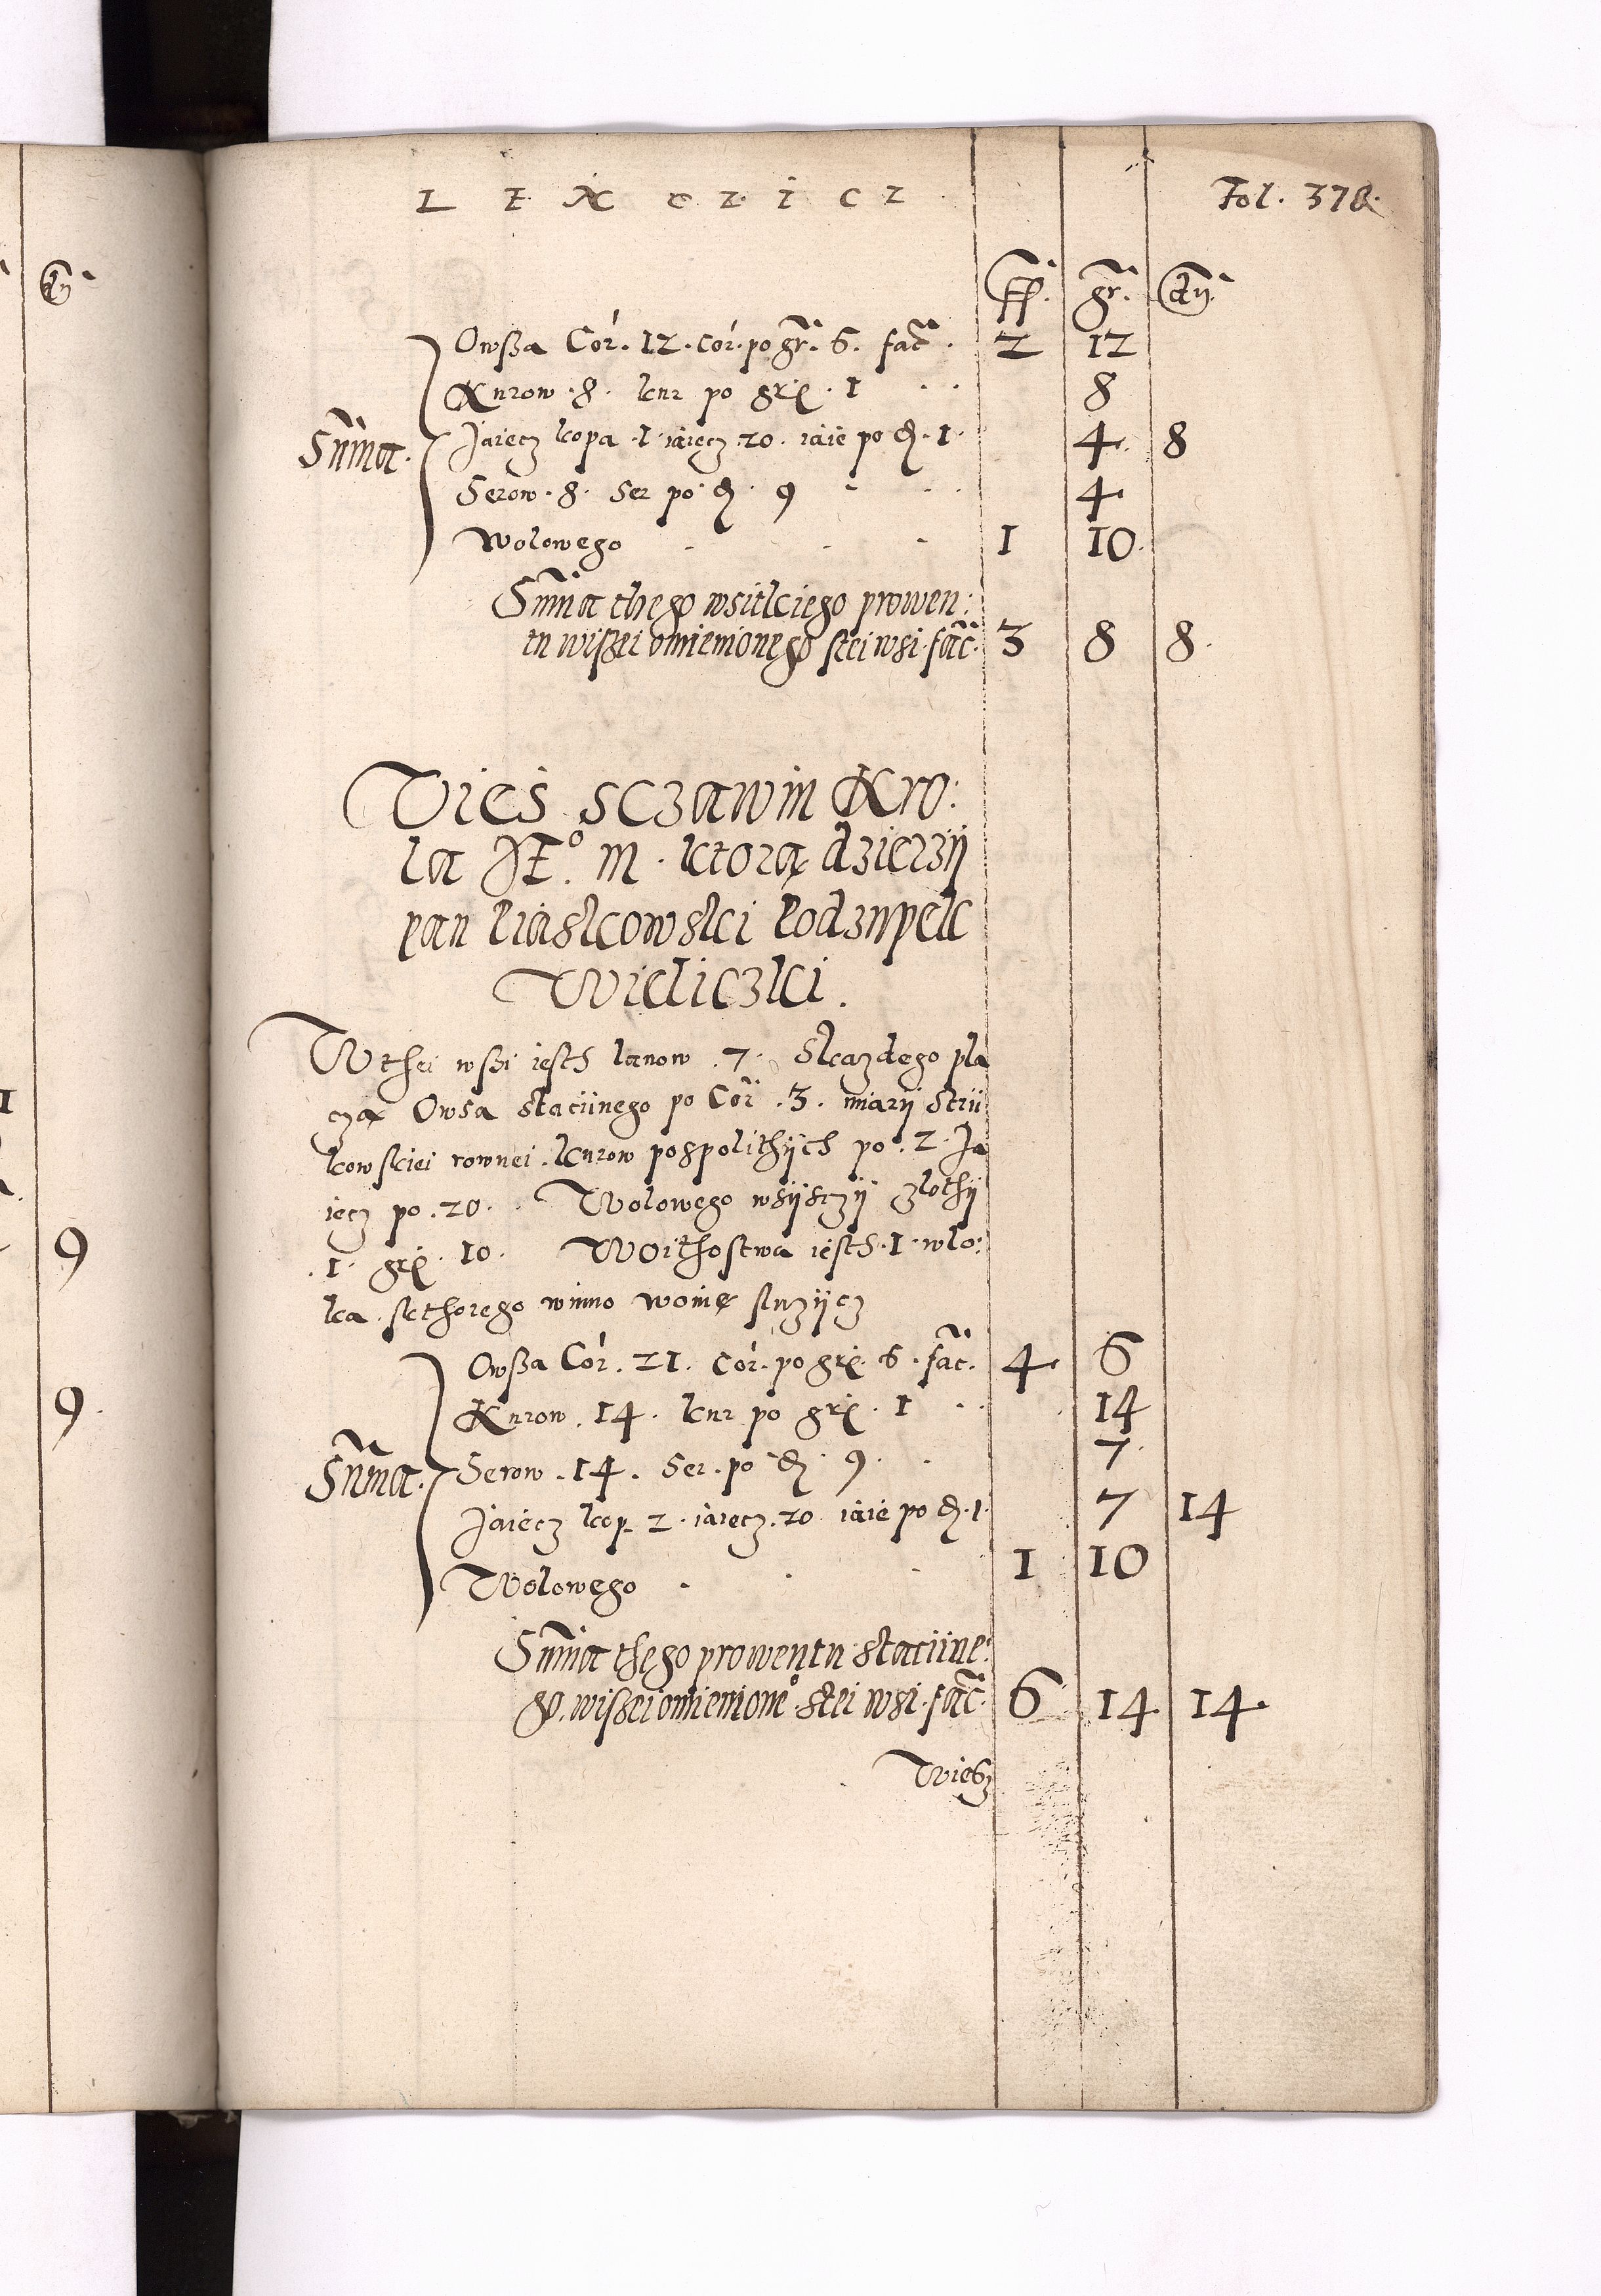 L E X O Z I C Z
Fol. 378.
ff. gr. dn.
Owßa Cor. 12. cor. po gr. 6. fac. 2 12
Kurow .8. kur po grx. 1 8
Summa. Jaiecz kopa .1. iaiecz .20. iaie po d. 1. 4. 8
Serow .8. Ser po d. 9 4
Wolowego 1 10.
Summa thego wsitkiego prowen:
tu wißei omienionego stei wsi. fac. 3 8 8.
Wies sczawin Kro:
la JE° M. ktorą dzierzÿ
pan Piaskowski Podzupek
Wieliczki.
W thei wßi iesth lanow .7. Skazdego pla
czą Owsa staciinego po Cor .3. miarÿ Strÿ
kowskiei rownei. kurow pospolithÿch po .2. Ja
iecz po .20. Wolowego wsÿstzÿ zlothÿ
.1. grx. 10. Woithostwa iesth .1. wlo:
ka. sktorego winno woinę sluzÿcz
Owßa Cor. 21. Cor. po grx. 6. fac. 4. 6
Kurow .14. kur po grx. 1 14
Summa. Serow .14. Ser. po d. 9. 7.
Jaiecz kop. 2. iaiecz. 20. iaie po d. 1. 7 14
Wolowego 1 10
Summa thego prowentu staciine:
go. wißei omienione° stei wsi. fac. 6 14 14.
Wiesz
dn
1
9
9.